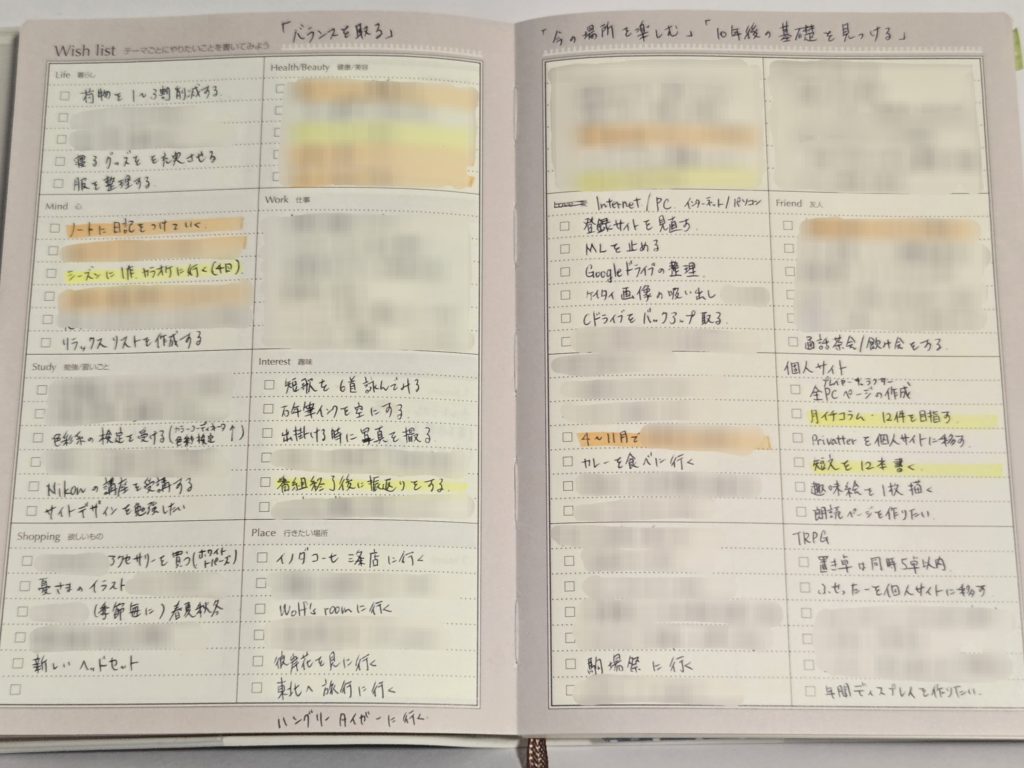 「バランスを取る」
「今の場所を楽しむ」「10年後の基礎を見つける」
Wish list テーマごとにやりたいことを書いてみよう
Life 暮らし
荷物を1〜3割削減する
寝るグッズを充実させる
服を整理する
Health/Beauty 健康/美容
Mind 心
ノートに日記をつけていく
シーズンに1作カラオケに行く(4回)
リラックスリストを作成する
Work 仕事
Study 勉強/習いごと
色彩系の検定を受ける(カラーコーディネータ 色彩検定↑)
Nikonの講座を受講する
サイトデザインを勉強したい
Interest 趣味
短歌を6首詠んでみる
万年筆インクを空にする
出掛ける時に写真を撮る
番組終了後に振返りをする
Shopping 欲しいもの
アクセサリーを買う(ホワイトトパーズ)
イラスト
(季節毎に)春夏秋冬
新しいヘッドセット
Place 行きたい場所
イノダコーヒ三条店に行く
Wolf's roomに行く
彼岸花を見に行く
東北へ旅行に行く
ハングリータイガーに行く
Internet/PC インターネット/パソコン
登録サイトを見直す
MLを止める
Googleドライブの整理
ケイタイ画像の吸い出し
Cドライブをバックアップ取る
Friend 友人
通話茶会/飲み会をする
4〜11月で
カレーを食べに行く
個人サイト
プレイヤーキャラクター
全PCページの作成
月イチコラム・12件を目指す
Privatterを個人サイトに移す
短文を12本書く
趣味絵を1枚描く
朗読ページを作りたい
駒場祭に行く
TRPG
置き卓は同時5卓以内
ふせったーを個人サイトに移す
年間ディスプレイを作りたい